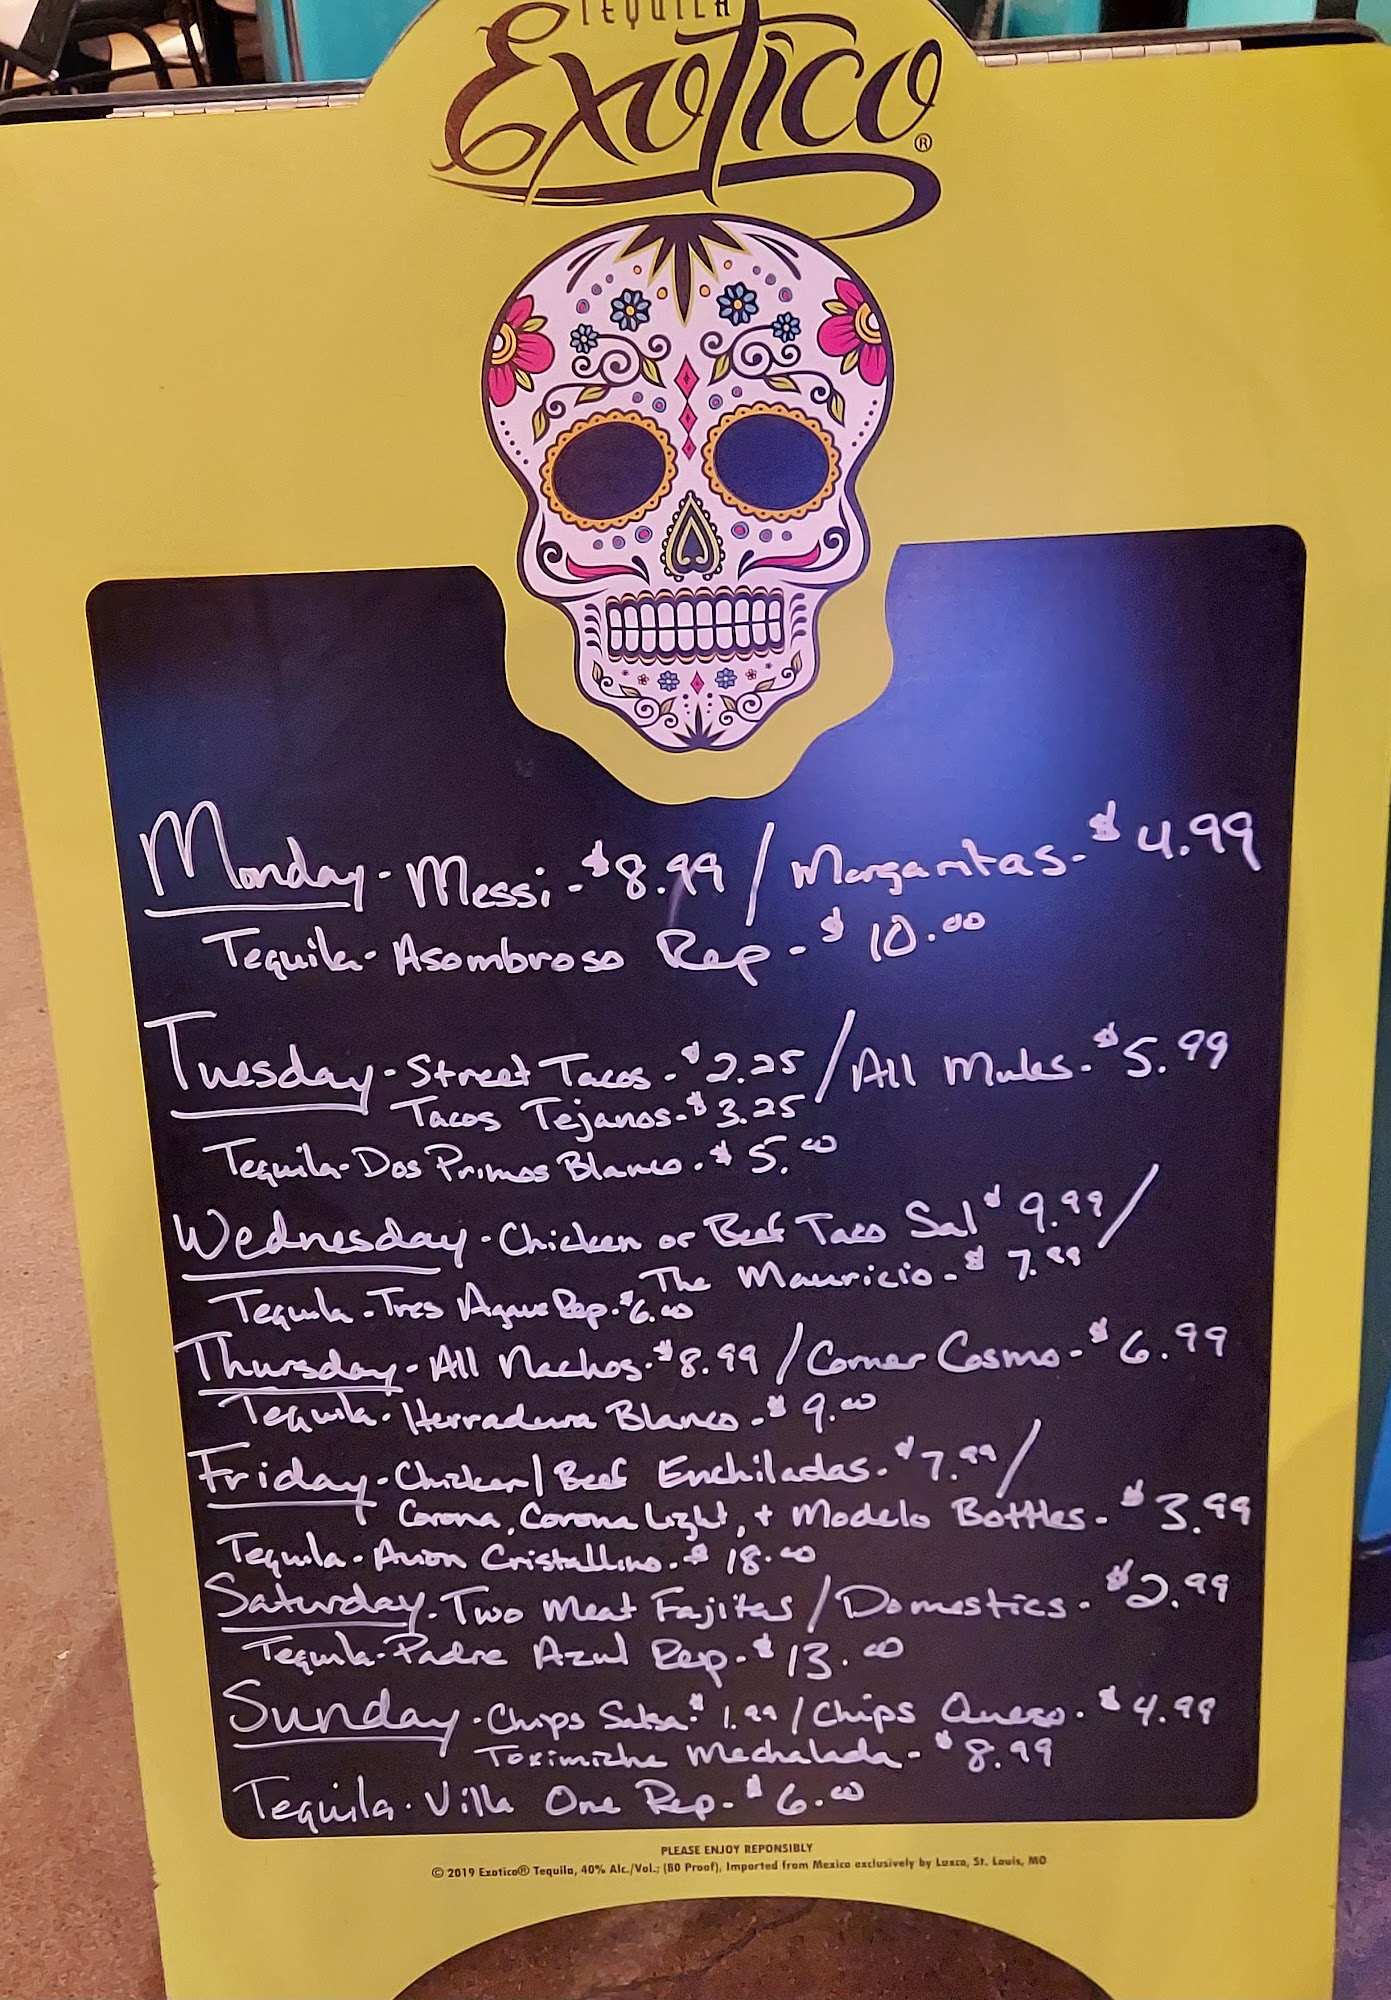 TEQUILA
Exotico®
Monday - Messi - $8.99 / Margaritas - $4.99
Tequila - Asombroso Rep - $10.00
Tuesday - Street Tacos - $2.25 / All Mules - $5.99
Tacos Tejanos - $3.25
Tequila - Dos Primos Blanco - $5.00
Wednesday - Chicken or Beef Taco Sal $9.99 /
The Mauricio - $7.99
Tequila - Tres Agave Rep. $6.00
Thursday - All Nachos - $8.99 / Corner Cosmo - $6.99
Tequila - Herradura Blanco - $9.00
Friday - Chicken / Beef Enchiladas - $7.99 /
Corona, Corona Light, + Modelo Bottles - $3.99
Tequila - Avion Cristallino - $18.00
Saturday - Two Meat Fajitas / Domestics - $2.99
Tequila - Padre Azul Rep - $13.00
Sunday - Chips Salsa - $1.99 / Chips Queso - $4.99
Mechalada - $8.99
Tequila - Villa One Rep - $6.00
PLEASE ENJOY REPONSIBLY
© 2019 Exotico® Tequila, 40% Alc./Vol.; (80 Proof), Imported from Mexico exclusively by Luxco, St. Louis, MO